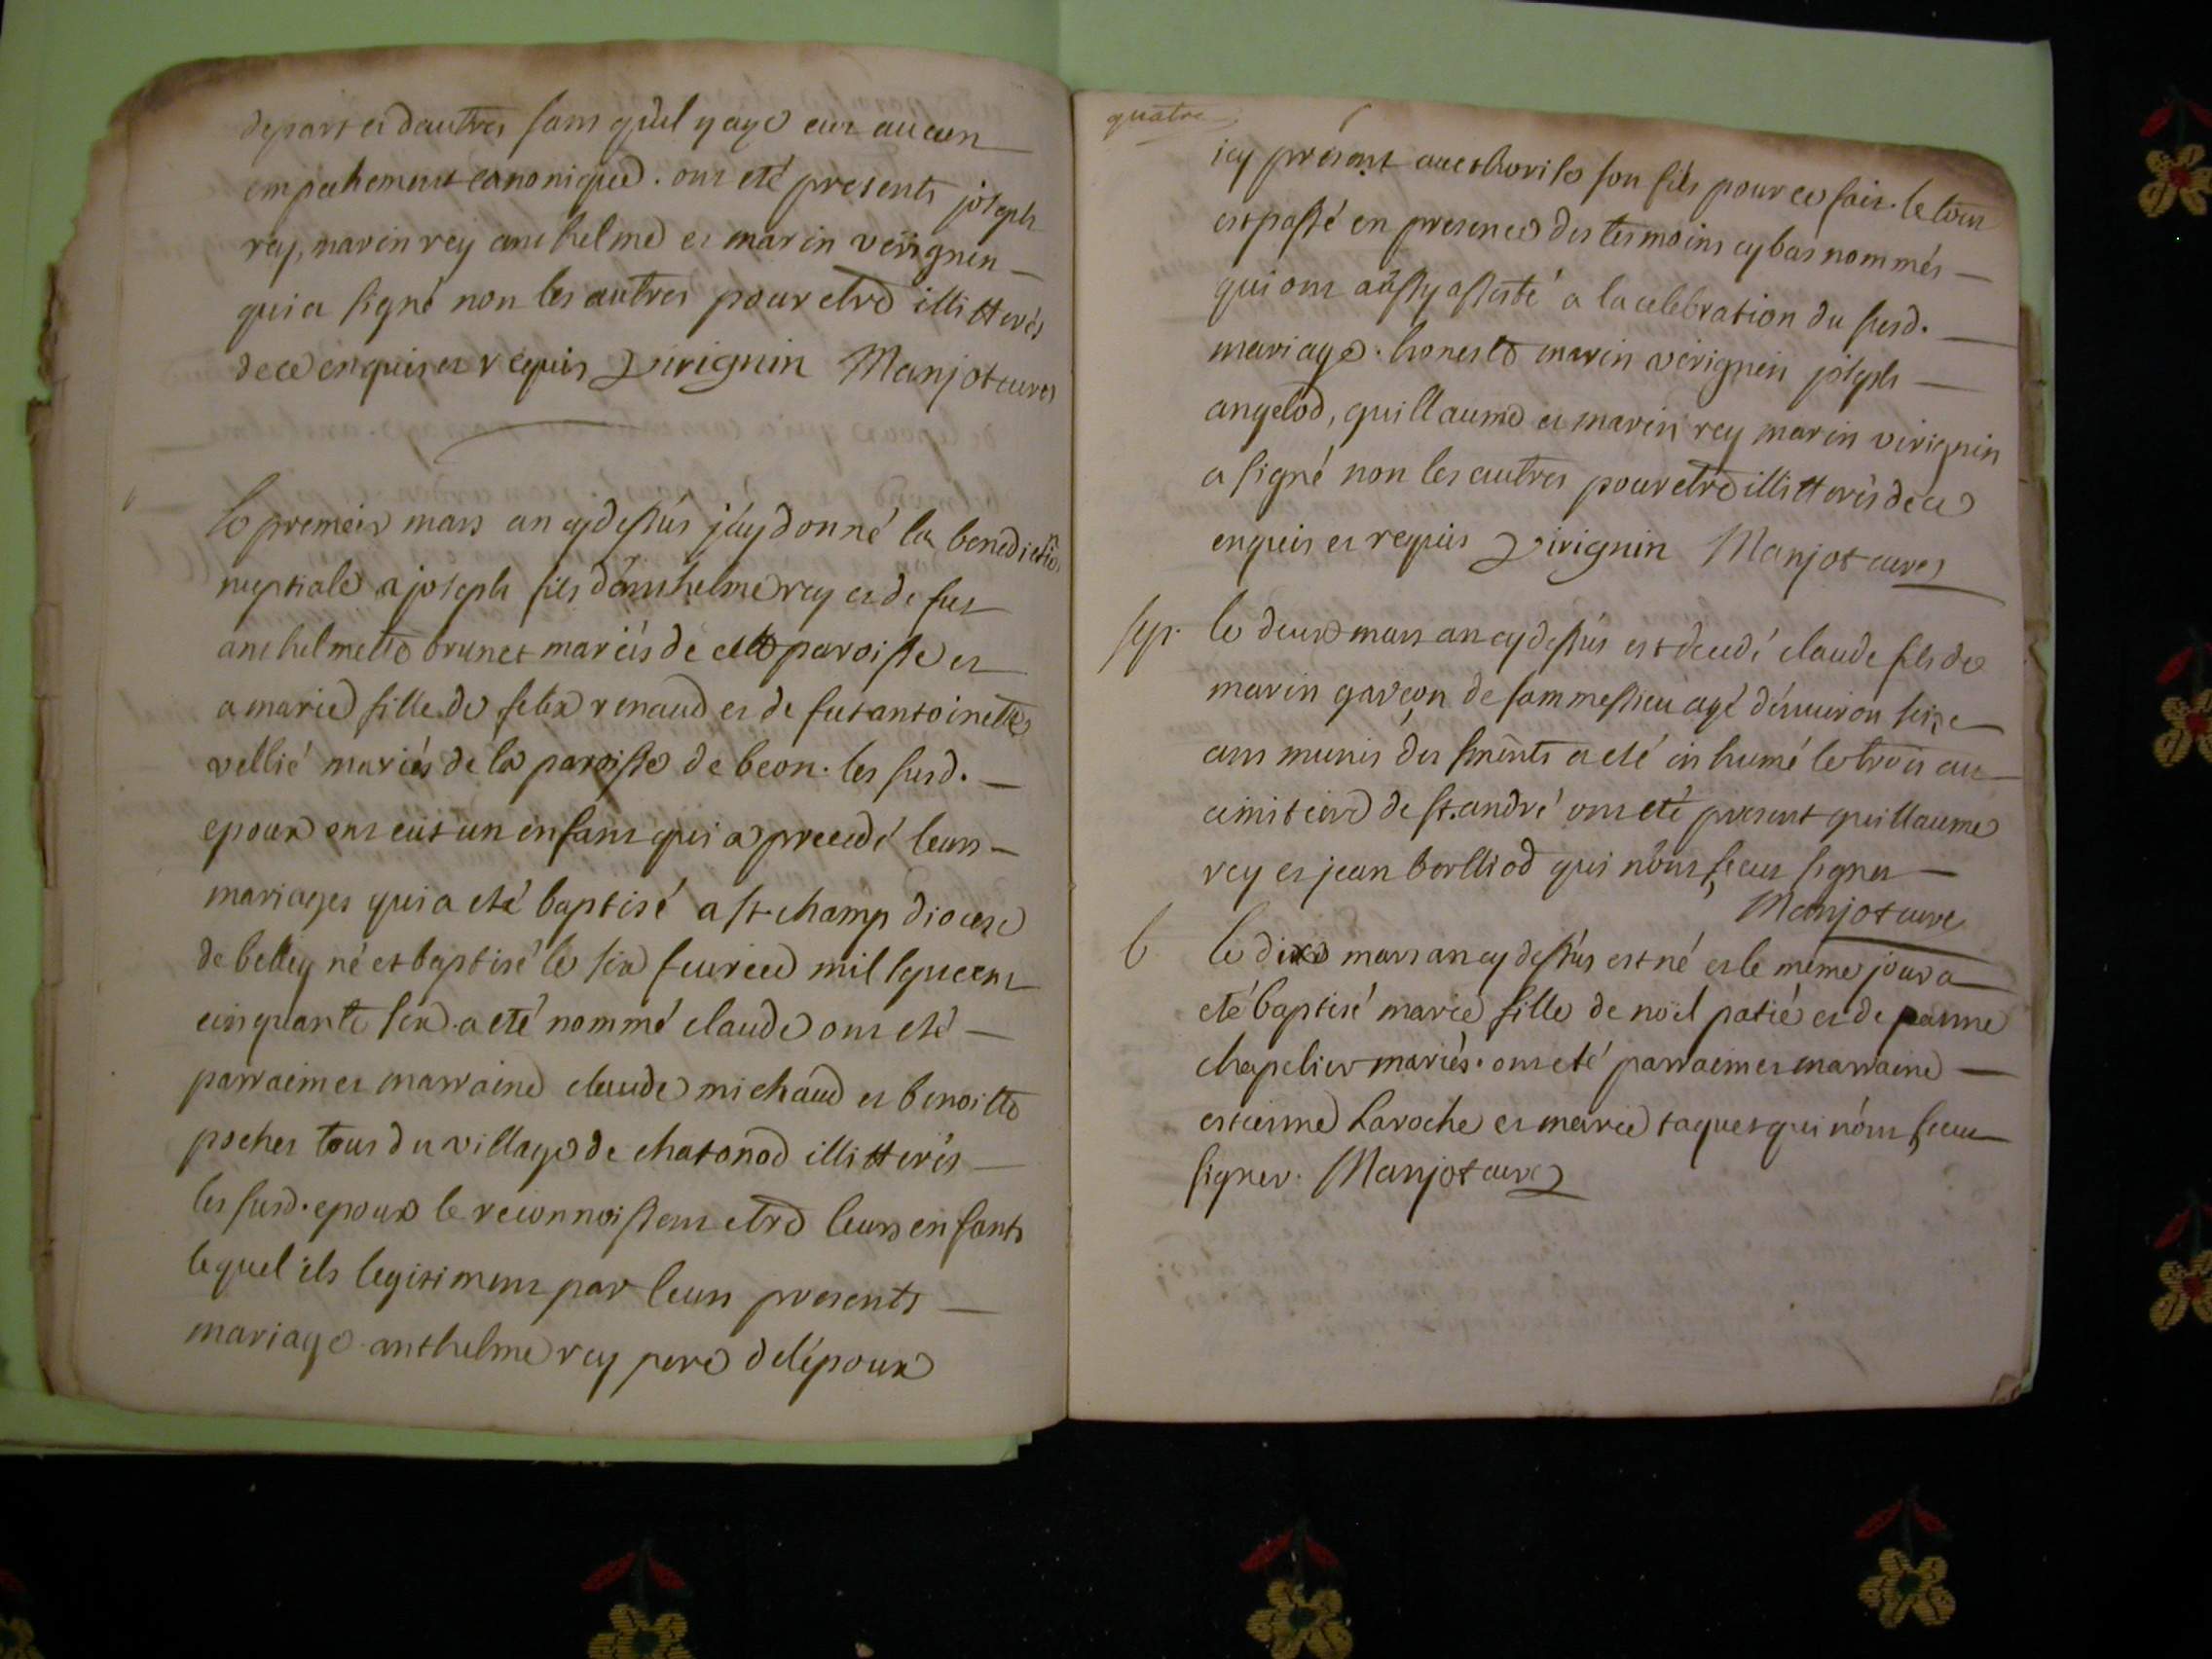 depart et dautres sans qu'il y aye eut aucun
empechement canonique. ont eté presents joseph
rey, marin rey anthelme et marin virignin
qui a signé non les autres pour etre illitterés
de ce enquis et requis Virignin Manjot curé
le premeir mars an cy dessus j'ay donné la benediction
nuptiale a joseph fils d'anthelme rey et de fut
anthelmette brunet mariés de cette paroisse et
a marie fille de felix renaud et de fut antoinette
vellié mariés de la paroisse de beon. les susd.
epoux ont eut un enfant qui a precedé leurs
mariages qui a eté baptisé a st champ diocese
de belley né et baptisé le six feuried mil sept cent
cinquante six. a eté nommé claude ont eté
parrain et marraine claude michaud et benoitte
pochet tous du village de chatonod illitterés
les susd. epoux le reconnoissent etre leurs enfants
lequel ils legitiment par leurs presents
mariage anthelme rey pere de l'époux
quatre
icy present aucthorise son fils pour ce fait. le tout
est passé en presence des tesmoins cy bas nommés
qui ont aussy assisté a la celebration du susd.
mariage. honeste marin virignin joseph
angelod, guillaume et marin rey marin virignin
a signé non les autres pour etre illitterés de ce
enquis et requis Virignin Manjot curé
sep. le deux mars an cy dessus est decedé claude fils de
marin garçon de sammessieu agé d'enuiron seize
ans munis des sments a eté inhumé le trois au
cimitiere de st. andré ont eté present guillaume
rey et jean borlliod qui n'ont sceut signer
Manjot curé
b le dixe mars an cy dessus est né et le meme jour a
eté baptisé marie fille de noel patié et de jeanne
chapelier mariés. ont eté parrain et marraine
estienne Laroche et marie taquet qui n'ont sceu
signer. Manjot curé